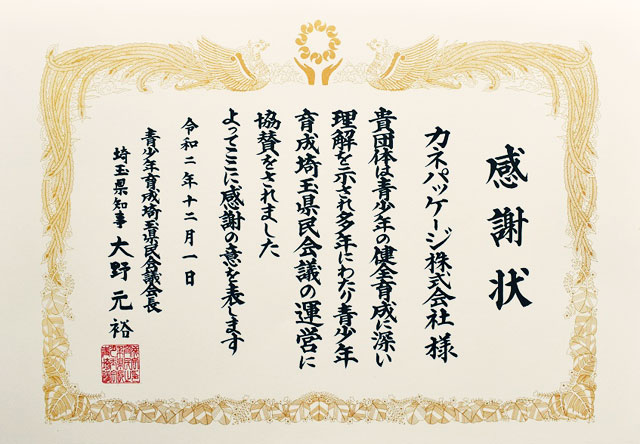 感謝状
カネパッケージ株式会社 様
貴団体は青少年の健全育成に深い
理解を示され多年にわたり青少年
育成埼玉県民会議の運営に
協賛をされました
よってここに感謝の意を表します
令和二年十二月一日
青少年育成埼玉県民会議会長
埼玉県知事 大野元裕